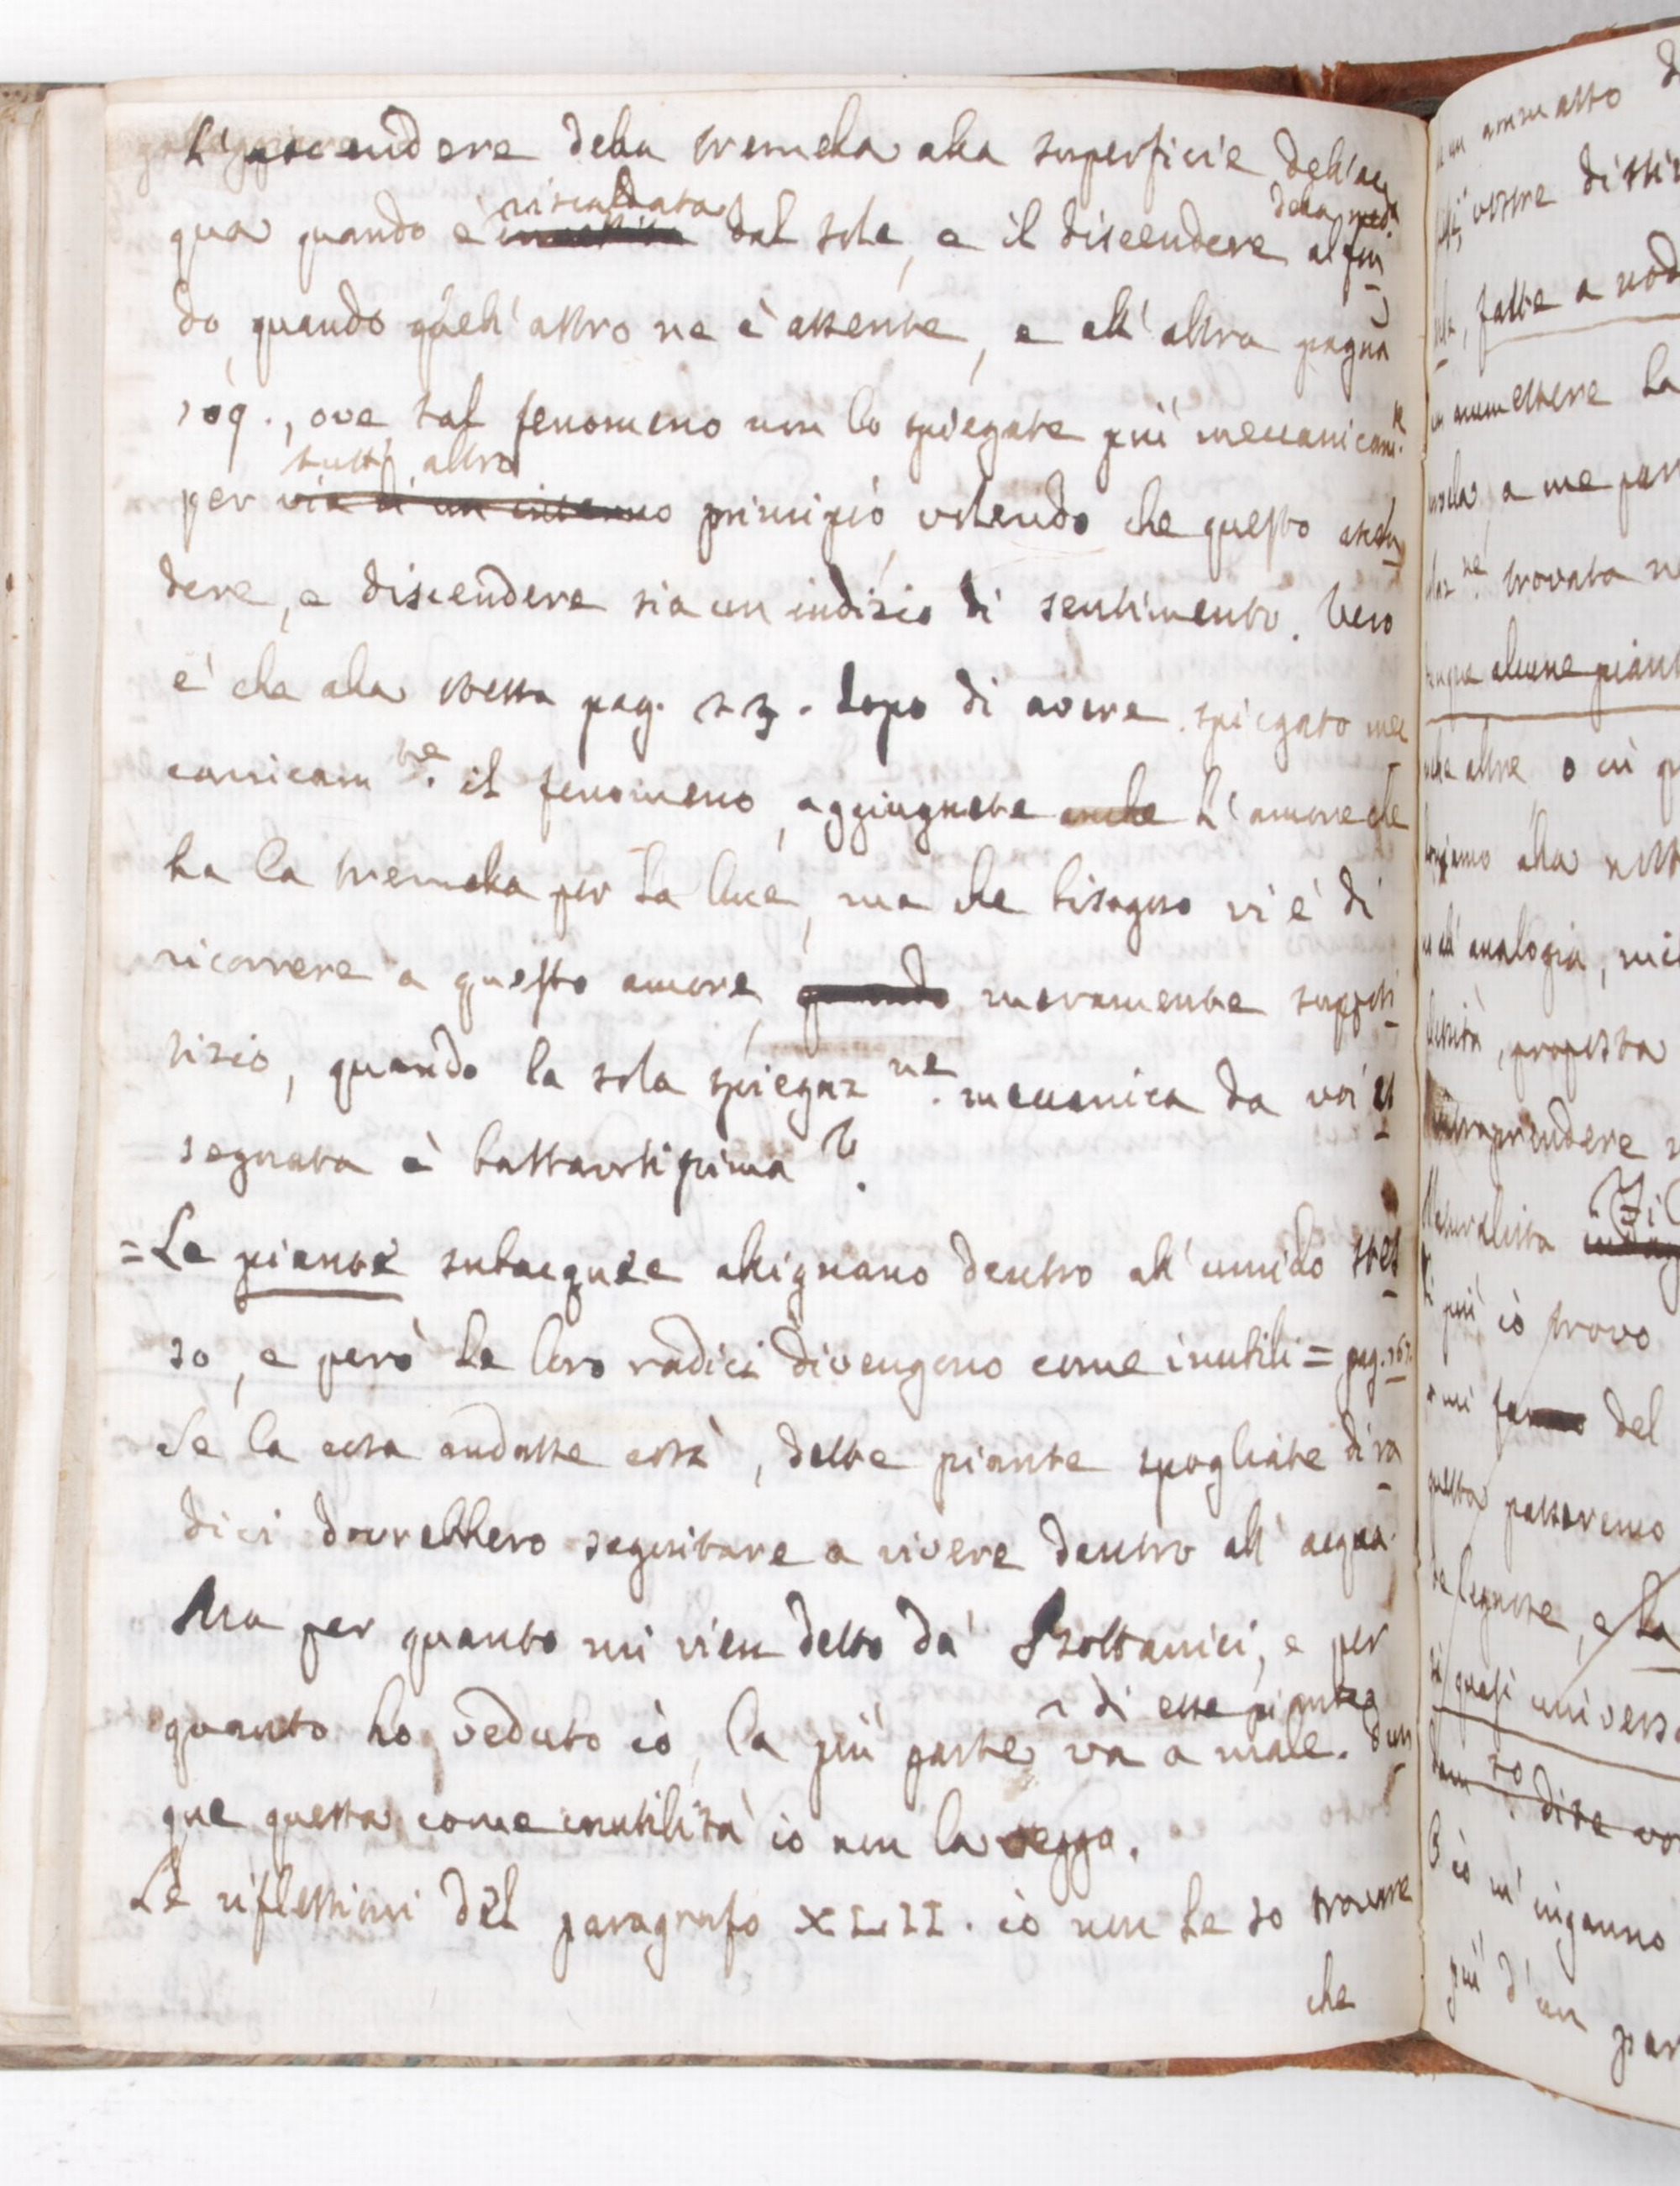 L'ascendere della tremella alla superficie dell'ac
qua quando è riscaldata dal sole, e il discendere della med.ª al fon
do, quando quell'astro ne è assente, e all'altra pagina
109., ove tal fenomeno non lo spiegate più meccanicam.te
per tutt'altro principio volendo che questo ascen
dere, e discendere sia un indizio di sentimento. Vero
è che alla stessa pag. 23. dopo di avere spiegato mec
canicam.te il fenomeno, aggiugnete anche l'amore che
ha la tremella per la luce, ma che bisogno vi è di
ricorrere a questo amore, meramente supposi
tizio, quando la sola spiegaz.ne meccanica da voi as
segnata è bastantissima?
=Le piante subacquee allignano dentro all'umido stes
so, e però le loro radici divengono come inutili = pag. 167.
Se la cosa andasse così, dette piante spogliate di ra
dici dovrebbero seguitare a vivere dentro all'acqua.
Ma per quanto mi vien detto da' Bottanici, e per
quanto ho veduto io, la più parte di esse piante va a male. Dun
que questa come inutilità io non la veggo.
Le riflessioni del paragrafo XLII. io non le so trovare
che
fatte a nod
ammettere la
a me par
trovata
alcune piant
altre o in
alla
analogia,
proposta
più io trovo
del
questa passeremo
e la
quasi univers
dite vo
io m'inganno
più d'un par